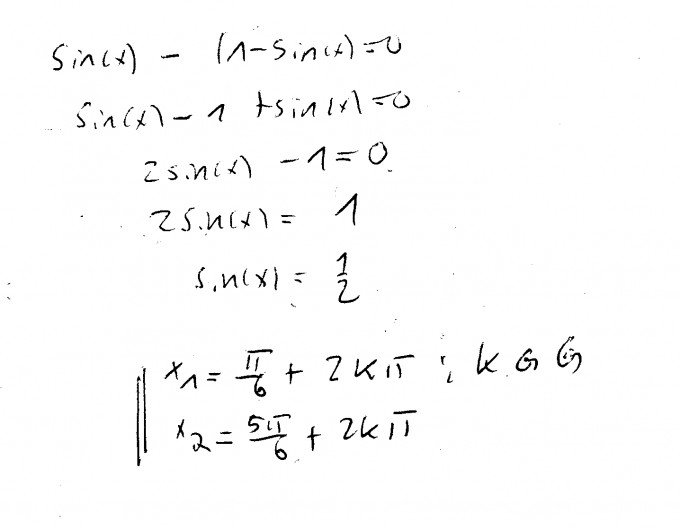 sin(x) - (1-sin(x)=0
sin(x) - 1 + sin(x)=0
2sin(x) - 1 = 0
2sin(x) = 1
sin(x) = 1/2
x₁ = π/6 + 2kπ ; k ∈ G
x₂ = 5π/6 + 2kπ